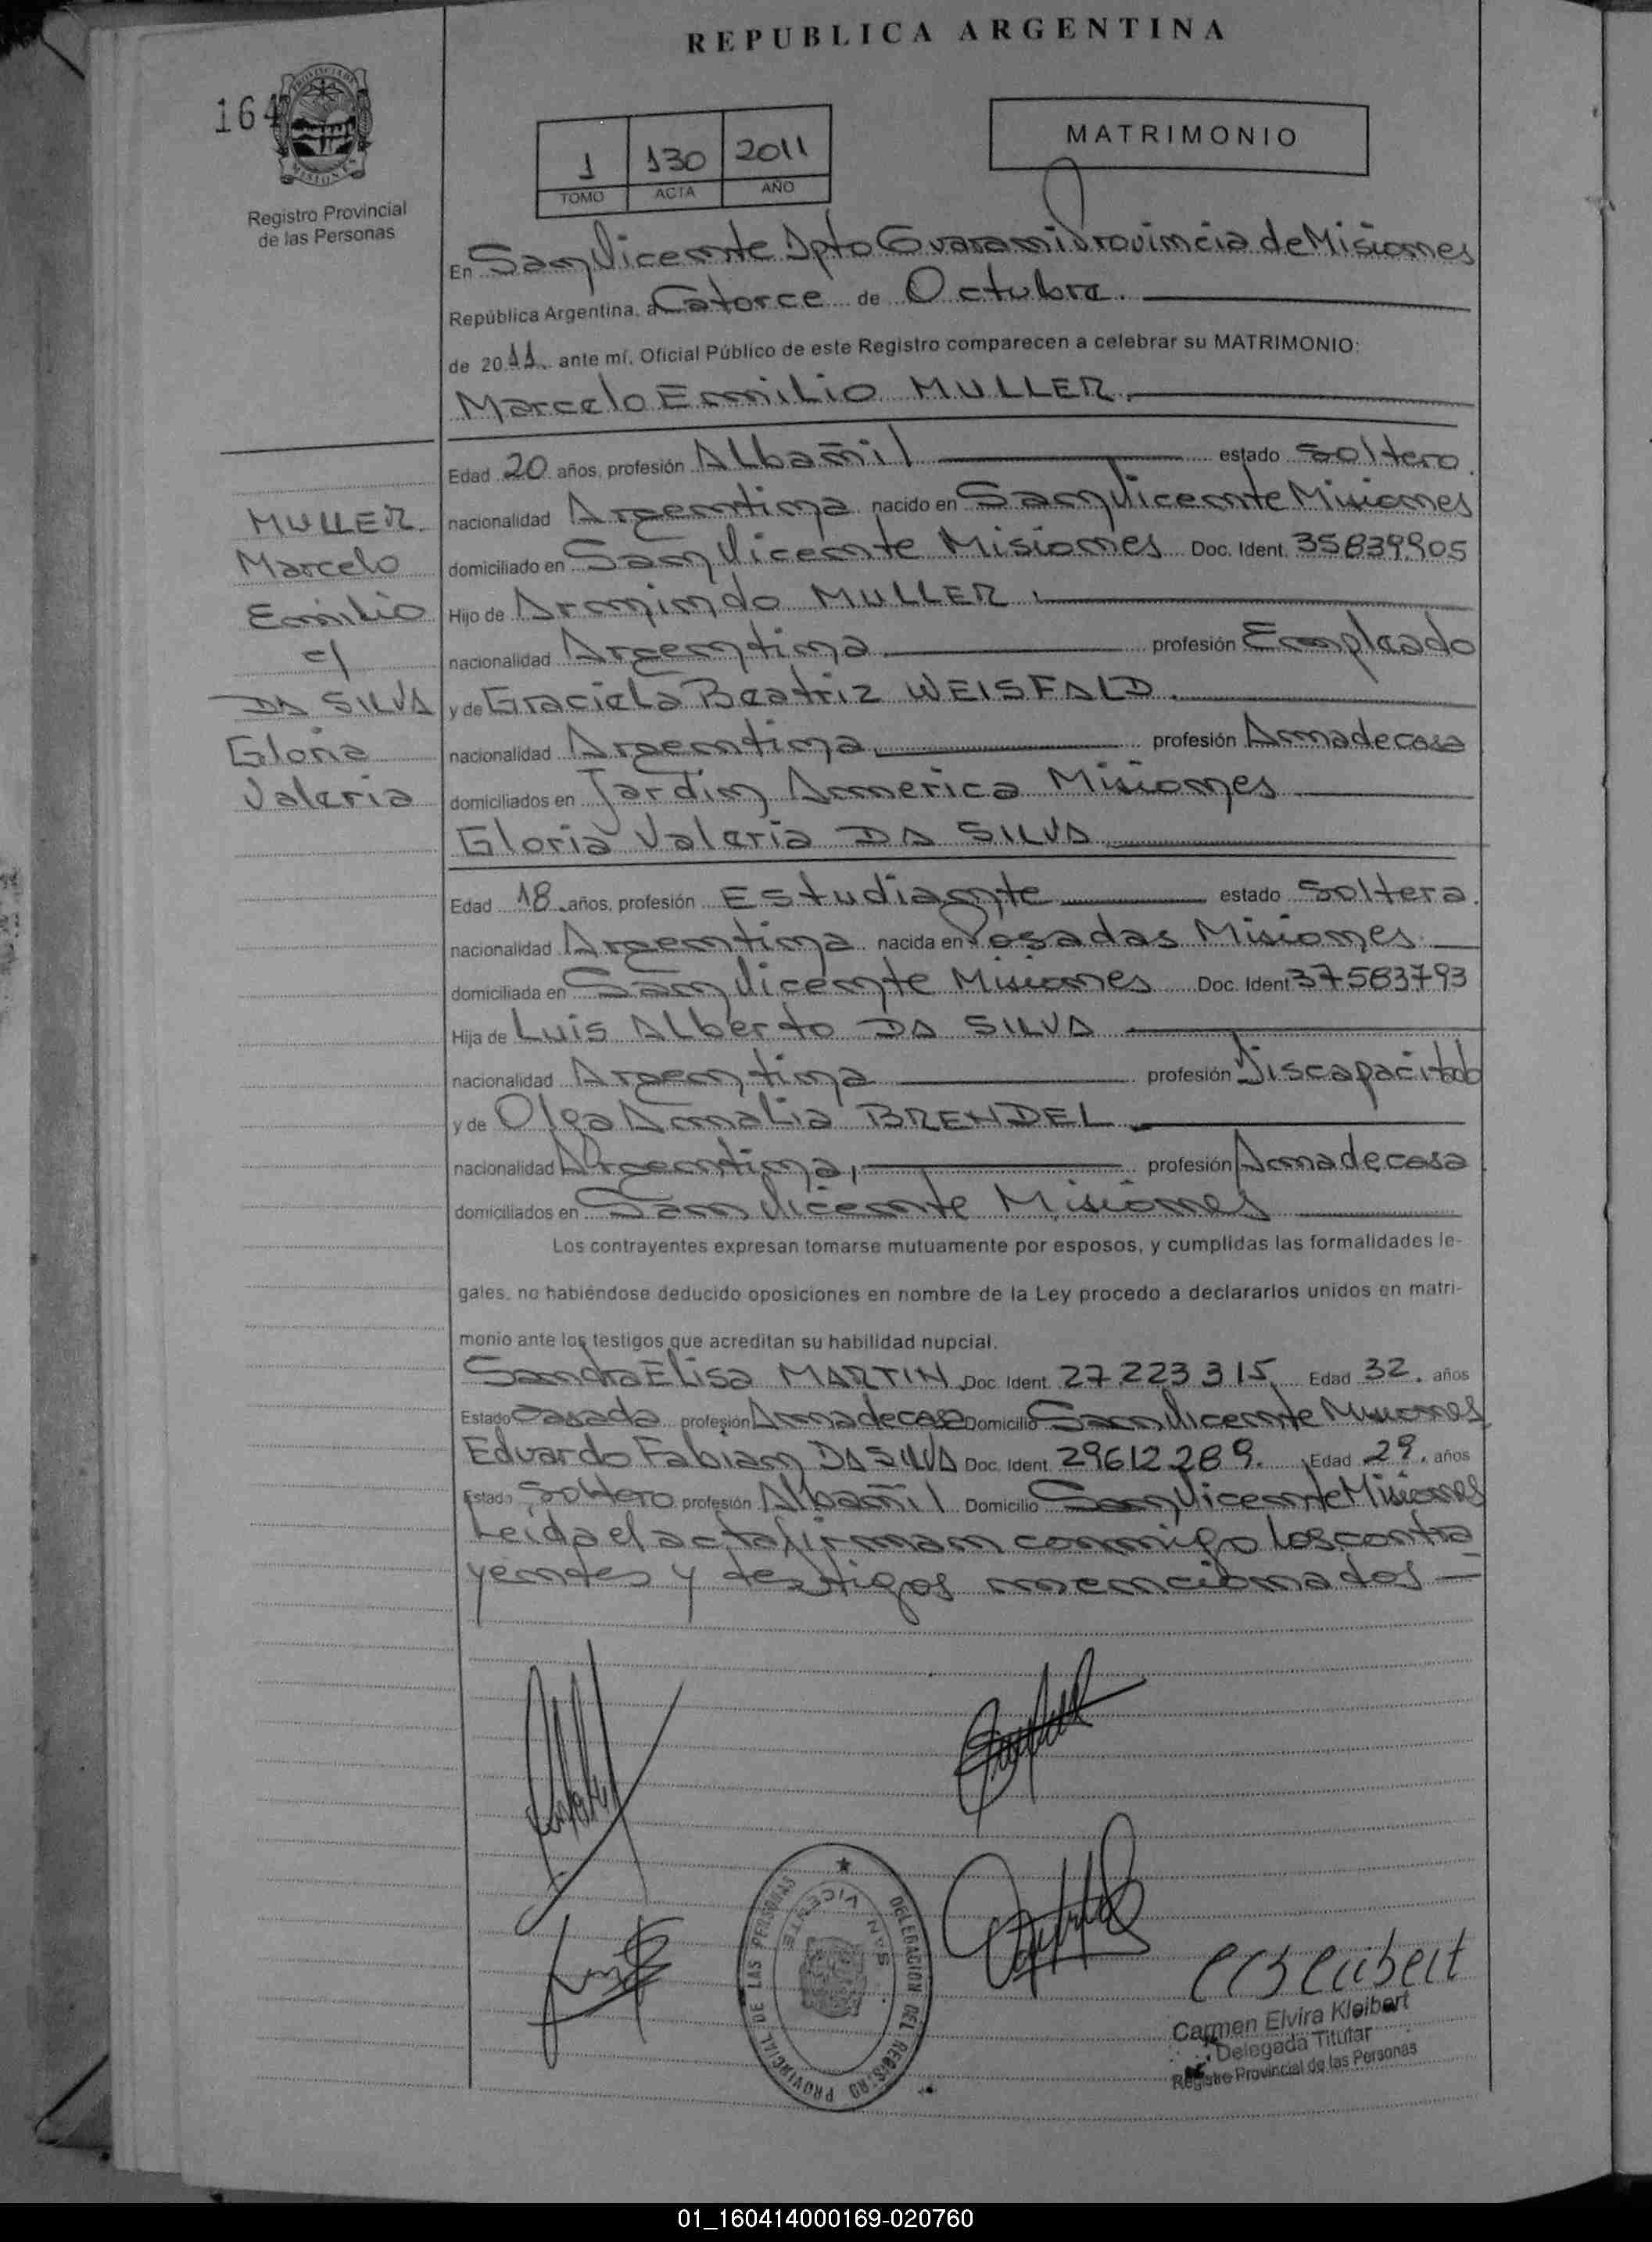 REPUBLICA ARGENTINA
164
PROVINCIA DE
MISIONES
Registro Provincial
de las Personas
1 130 2011
TOMO ACTA AÑO
MATRIMONIO
En San Vicente Dpto Guarani Provincia de Misiones
República Argentina, a Catorce de Octubre.
de 2011. ante mí, Oficial Público de este Registro comparecen a celebrar su MATRIMONIO:
Marcelo Emilio MULLER.
Edad 20 años, profesión Albañil estado Soltero.
nacionalidad Argentina nacido en San Vicente Misiones
domiciliado en San Vicente Misiones Doc. Ident. 35839905
Hijo de Armindo MULLER.
nacionalidad Argentina profesión Empleado
y de Graciela Beatriz WEISFALD.
nacionalidad Argentina profesión Ama de casa
domiciliados en Jardin America Misiones
Gloria Valeria DA SILVA
MULLER.
Marcelo
Emilio
c/
DA SILVA
Gloria
Valeria
Edad 18 años, profesión Estudiante estado Soltera.
nacionalidad Argentina nacida en Posadas Misiones
domiciliada en San Vicente Misiones Doc. Ident 37583793
Hija de Luis Alberto DA SILVA
nacionalidad Argentina profesión Discapacitado
y de Olga Amalia BRENDEL
nacionalidad Argentina, profesión Ama de casa
domiciliados en San Vicente Misiones
Los contrayentes expresan tomarse mutuamente por esposos, y cumplidas las formalidades le-
gales, no habiéndose deducido oposiciones en nombre de la Ley procedo a declararlos unidos en matri-
monio ante los testigos que acreditan su habilidad nupcial.
Sandra Elisa MARTIN Doc. Ident. 27.223.315. Edad 32. años
Estado Casada profesión Ama de casa Domicilio San Vicente Misiones
Eduardo Fabian DA SILVA Doc. Ident. 29612289. Edad 29. años
Estado Soltero profesión Albañil Domicilio San Vicente Misiones
Leida el acta firman conmigo los contra
yentes y testigos mencionados
DELEGACION DEL REGISTRO PROVINCIAL DE LAS PERSONAS
SAN VICENTE
Carmen Elvira Kleibert
Delegada Titular
Registro Provincial de las Personas
01_160414000169-020760